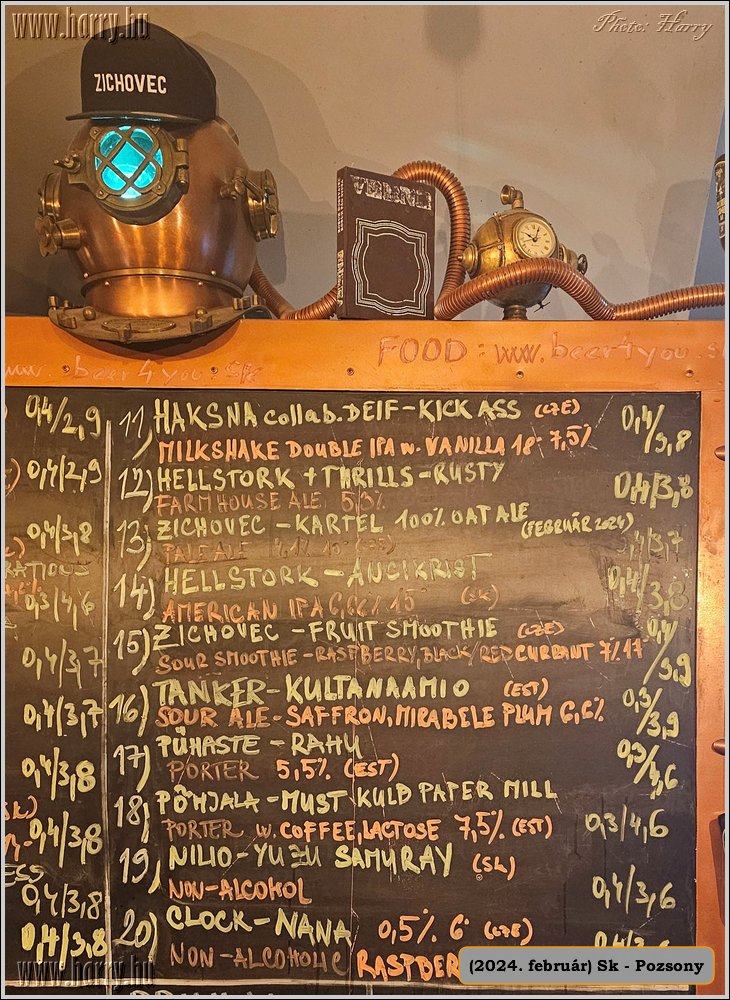 www.harry.hu
Photo: Harry
ZICHOVEC
VERNE
FOOD: www.beer4you.s
www.beer4you.sk
0,4/2,9
0,4/2,9
0,4/3,8
0,3/4,6
0,4/3,7
0,4/3,7
0,4/3,8
0,4/3,8
ESS
0,4/3,8
0,4/3,8
11) HAKSNA collab. DEIF-KICK ASS (CZE) 0,4/3,8
MILKSHAKE DOUBLE IPA w. VANILLA 18° 7,5%
12) HELLSTORK + THRILLS-RUSTY 0,4/3,8
FARMHOUSE ALE 5,3%
13) ZICHOVEC - KARTEL 100% OAT ALE (FEBRUÁR 2024) /3,7
PALE ALE
14) HELLSTORK - ANCIKRIST 0,4/3,8
AMERICAN IPA 6,66% 15° (SK)
15) ZICHOVEC - FRUIT SMOOTHIE (CZE) 0,4/3,9
SOUR SMOOTHIE - RASPBERRY, BLACK/RED CURRANT 7% 17
16) TANKER - KULTANAAMIO (EST) 0,3/3,9
SOUR ALE - SAFFRON, MIRABELE PLUM 6,6%
17) PÜHASTE - RAHU 0,3/4,6
PORTER 5,5% (EST)
18) PÕHJALA - MUST KULD PAPER MILL 0,3/4,6
PORTER w. COFFEE, LACTOSE 7,5% (EST)
19) NILIO - YUZU SAMURAY (SK) 0,4/3,6
NON-ALCOHOL
20) CLOCK - NANA 0,5% 6° (CZE)
NON-ALCOHOLIC RASPBER
www.harry.hu
(2024. február) Sk - Pozsony